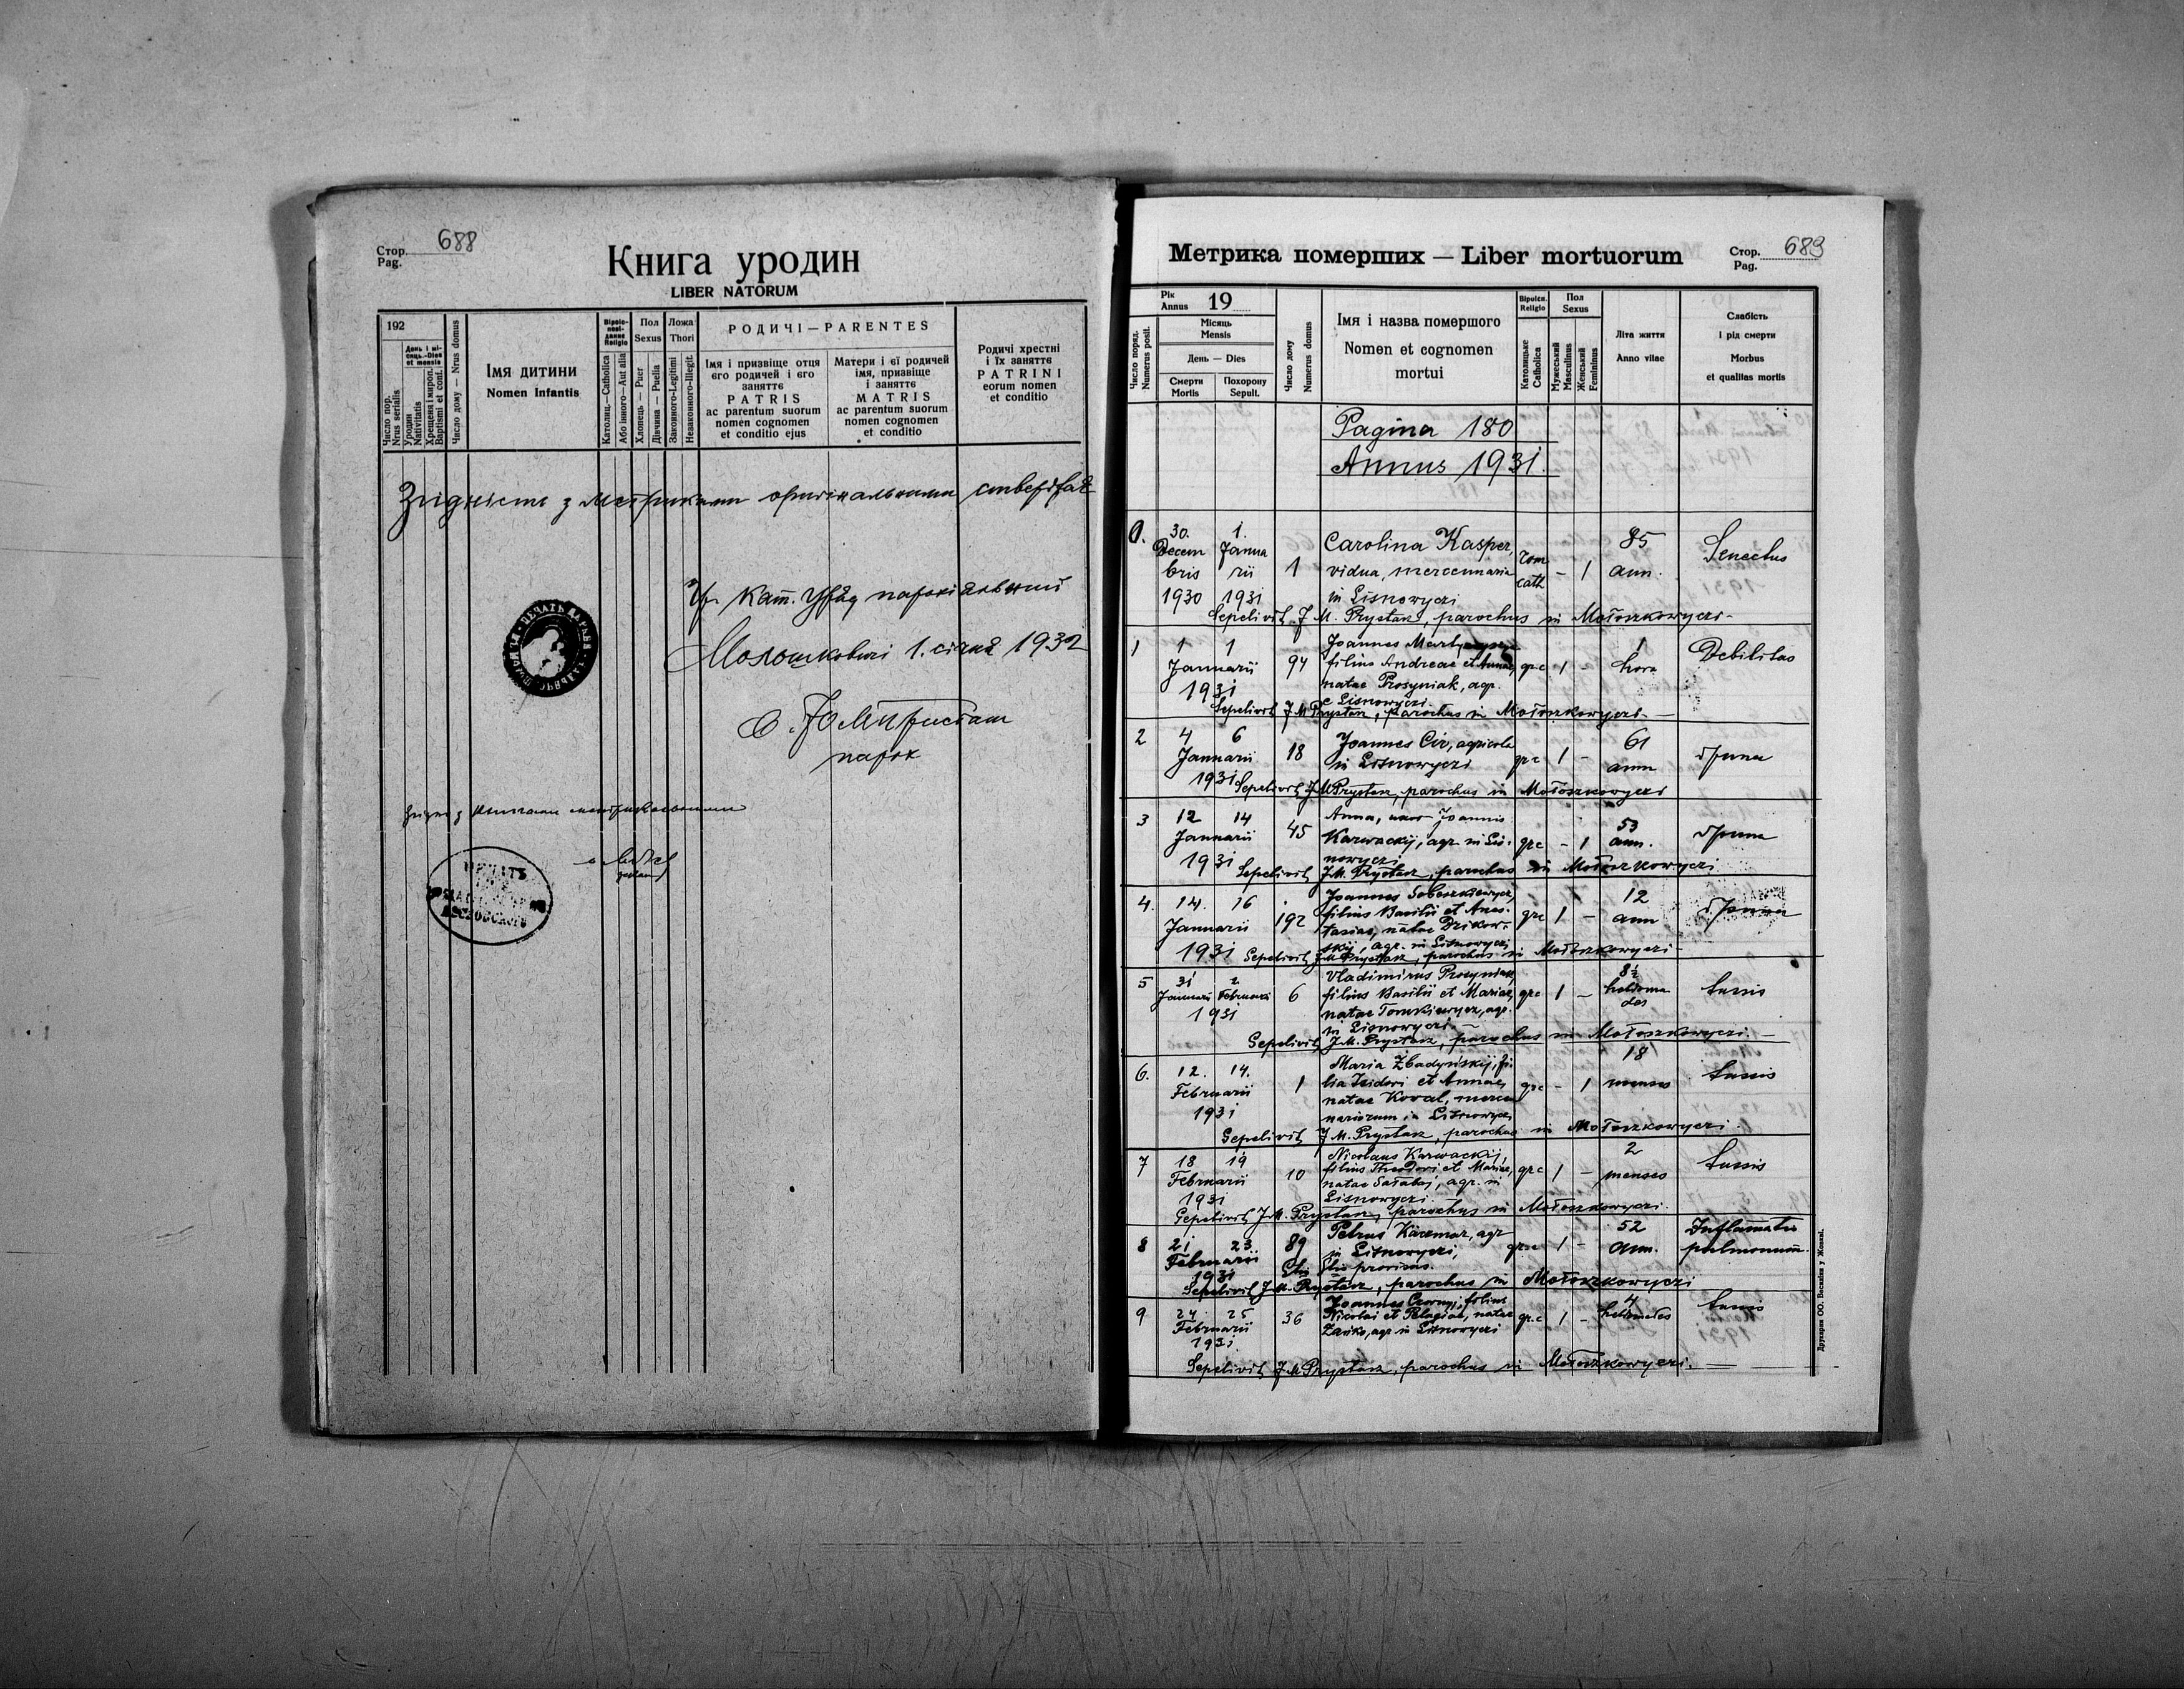 Стор. 688
Pag.
Книга уродин
LIBER NATORUM
192
День і місяць — Dies et mensis
Число пор.
Nrus serialis
Уродин
Nativitatis
Хрещеня і миропом.
Baptismi et conf.
Число дому — Nrus domus
ІМЯ ДИТИНИ
Nomen Infantis
Religio
Католиц.—Catholica
Або іншого—Aut alia
Пол
Sexus
Хлопець — Puer
Дівчина — Puella
Ложа
Thori
Законного-Legitimi
Незаконного-Illegit.
РОДИЧІ — PARENTES
Імя і призвіще отця
єго родичей і єго
занятте
PATRIS
ac parentum suorum
nomen cognomen
et conditio ejus
Матери і єї родичей
імя, призвіще
і занятте
MATRIS
ac parentum suorum
nomen cognomen
et conditio
Родичі хрестні
і їх занятте
PATRINI
eorum nomen
et conditio
Згідність з метриками оригінальними
Гр. Кат. Уряд парохіяльний
Молошковичі 1. січня 1932
парох
Метрика померших — Liber mortuorum
Стор. 689
Pag.
Число поряд.
Numerus posit.
Рік
Annus 19
Місяць
Mensis
День — Dies
Смерти
Mortis
Похорону
Sepult.
Число дому
Numerus domus
Імя і назва помершого
Nomen et cognomen
mortui
Religio
Католицьке
Catholica
Пол
Sexus
Мужеський
Masculinus
Женський
Femininus
Літа життя
Anno vitae
Слабість
і рід смерти
Morbus
et qualitas mortis
Pagina 180
Annus 1931.
0. 30. Decembris 1930 1. Januarii 1931 1 Carolina Kasper, vidua, mercennaria in Lisnowyczi rom cath - 1 85 ann. Senectus
Sepelivit J M. Prystasz, parochus in Mołoszkowyczi-
1 1 1 Januarii 1931 94 Joannes filius Andreae et Annae, natae Prosyniak, agr. e Lisnowyczi. gr c 1 - 1 hora Debilitas
Sepelivit J M Prystasz, parochus in Mołoszkowyczi-
2 4 6 Januarii 1931 18 Joannes Cir, agricola in Lisnowyczi gr c 1 - 61 ann
Sepelivit J M Prystasz, parochus in Mołoszkowyczi
3 12 14 Januarii 1931 45 Anna, uxor Joannis Karwackij, agr. in Lisnowyczi gr c - 1 53 ann.
Sepelivit J.M. Prystasz, parochus in Mołoszkowyczi
4. 14. 16 Januarii 1931 192 Joannes filius Basilii et Anastasiae, natae agr. in Lisnowyczi gr c 1 - 12 ann
Sepelivit J M Prystasz, parochus in Mołoszkowyczi-
5 31 2 Januarii Februarii 1931 6 Vladimirus Prosyniak, filius Basilii et Mariae, natae Tomkiewycz, agr. in Lisnowyczi gr c 1 - 8½ hebdomades tussis
Sepelivit J.M. Prystasz, parochus in Mołoszkowyczi. -
6. 12. 14. Februarii 1931 1 Maria Zbadyńskij, filia Isidori et Annae, natae Koval, mercenariorum in Lisnowyczi gr c - 1 18 menses tussis
Sepelivit J M. Prystasz, parochus in Mołoszkowyczi.
7 18 19 Februarii 1931 10 Nicolaus Karwackij, filius Theodori et Mariae, natae Sałabaj, agr. in Lisnowyczi. gr c 1 - 2 menses tussis
Sepelivit J.M. Prystasz, parochus in Mołoszkowyczi.
8 21 23 Februarii 1931 89 Petrus Karcmar, agr in Lisnowyczi, provisus. gr c 1 - 52 ann. Inflamatio pulmonum.
Sepelivit J.M. Prystasz, parochus in Mołoszkowyczi
9 24 25 Februarii 1931. 36 Joannes Czornyj, filius Nicolai et Pelagiae, natae agr in Lisnowyczi gr. c 1 - 4 hebdomades tussis
Sepelivit J M Prystasz, parochus in Mołoszkowyczi. -
Друкарня ОО. Василіян у Жовкві.